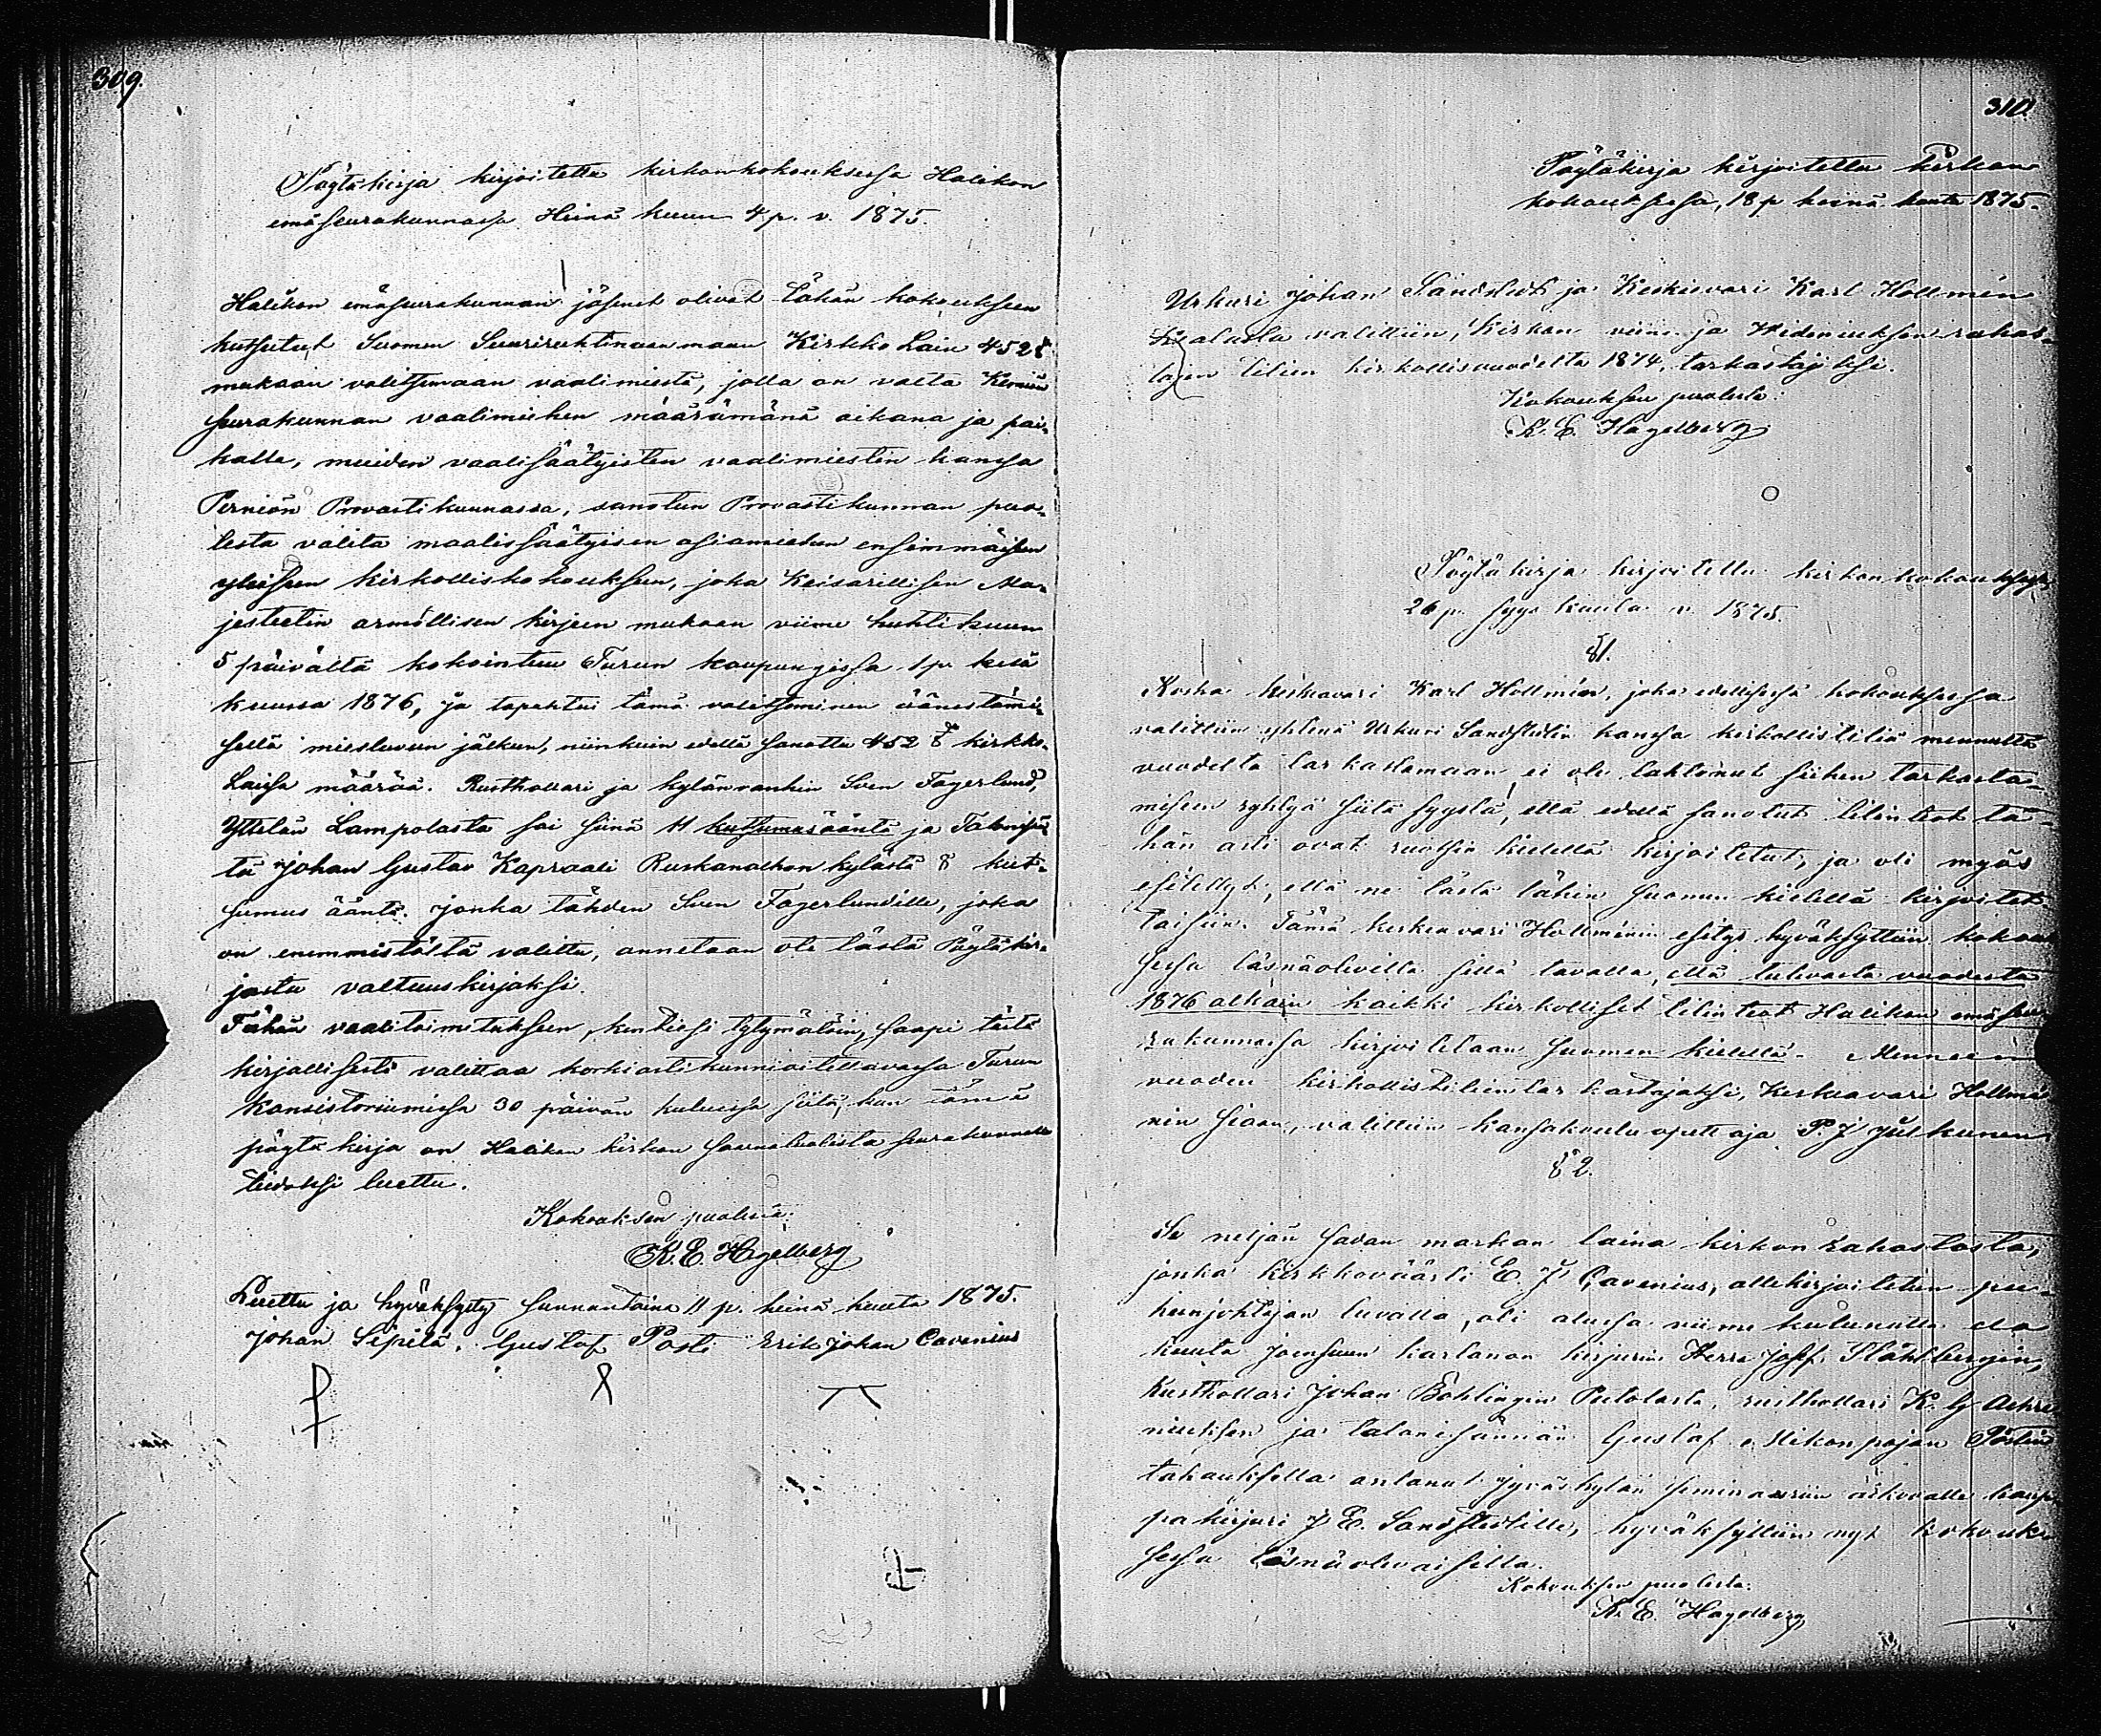 309.
Pöytäkirja kirjoitettu kirkonkokouksessa Halikon
emäseurakunnassa Heinä kuun 4 p. v. 1875.
Halikon emäseurakunnan jäsenet olivat tähän kokoukseen
kutsutut Suomen Suuriruhtinaanmaan Kirkko Lain 452 §
mukaan valitsemaan vaalimiestä, jolla on valta Kemiön
seurakunnan vaalimiehen määräämänä aikana ja pai-
kalla, muiden vaalisäätyisten vaalimiesten kanssa
Perniön Provastikunnassa, sanotun Provastikunnan puo-
lesta valita maalissäätyisen asiamiehen ensimmäiseen
yleiseen kirkolliskokoukseen, joka Keisarillisen Ma-
jesteetin armollisen kirjeen mukaan viime huhtikuun
5 päivältä kokointuu Turun kaupungissa 1 p. kesä
kuussa 1876, ja tapahtui tämä valitseminen äänestämi-
sellä miesluvun jälkeen, niinkuin edellä sanottu 452 § kirkko-
Laissa määrää. Rusthollari ja kylänvanhin Sven Fagerlund,
Yttelän Lampolasta sai siinä 11 kutsumusääntä ja Talonisän-
tä Johan Gustav Kapraali Ruskanahkon kylästä 8 kut-
sumus ääntä. Jonka tähden Sven Fagerlundille, joka
on enemmistöltä valittu, annetaan ote tästä Pöytäkir-
jasta valtuuskirjaksi.
Tähän vaalitoimitukseen, ken tiesi tytymätöin, saapi täitä
kirjallisesti valittaa korkiasti kunnioitettavassa Turun
Konsistoriumissa 30 päivän kuluessa siitä, kun tämä
pöytäkirja on Halikon kirkon saarnatuolista seurakunnalle
tiedoksi luettu.
Kokouksen puolesta:
K. E. Hagelberg
Luettu ja hyväksytty sunnuntaina 11 p. heinä kuuta 1875.
Johan Sipilä. Gustaf Posti Erik Johan Cavenius
310.
Pöytäkirja kirjoitettu kirkon
kokouksessa, 18 p heinä kuuta 1875.
Urkuri Johan Sandstedt ja Keskievari Karl Hollmén
valittiin, Kirkon viini- ja Hideniuksen rahas-
tojen tilien kirkollisvuodelta 1874, tarkastajiksi.
Kokouksen puolesta:
K. E. Hagelberg
Pöytäkirja kirjoitettu kirkonkokouksessa
26 p. syys kuuta v. 1875.
§1.
Koska keskievari Karl Hollmén, joka edellisessä kokouksessa
valittiin yhtenä Urkuri Sandstedtin kanssa kirkollistiliä menneeltä
vuodelta tarkastamaan, ei ole tahtonut siihen tarkasta-
miseen ryhtyä siitä syystä, että edellä sanotut tilinteot tä-
hän asti ovat ruotsin kielellä kirjoitetut, ja oli myös
esitellyt, että ne tästä lähin suomen kielellä kirjoitet-
taisiin. Tämä keskievari Hollménin esitys hyväksyttiin kokouk-
sessa läsnäolevilta sillä tavalla, että tulevasta vuodesta
1876 alkain kaikki kirkolliset tilinteot Halikon emäseu-
rakunnassa kirjoitetaan suomen kielellä. Menneen
vuoden kirkollistilein tarkastajaksi, Keskievari Hollmé-
nin siaan, valittiin kansakoulu opettaja P. J Julkunen
§ 2.
Se neljän sadan markan laina kirkon rahastosta,
jonka kirkkoväärti E. J Cavenius, allekirjoitetun pu-
heenjohtajan luvalla, oli alussa viime kuluneen elo
kuuta Joensuun kartanon kirjurin Herra Josef. Ståhlbergin,
Rusthollari Johan Böhlingin Puotolasta, rusthollari K. G
niuksen ja talonisännän Gustaf Mikonpojan Postin
takauksella antanut Jyväskylän seminaariin aikovalle kaup-
pakirjuri J E. Sandstedtille, hyväksyttiin nyt kokouk-
sessa läsnäolevaisilta.
Kokouksen puolesta:
K. E. Hagelberg